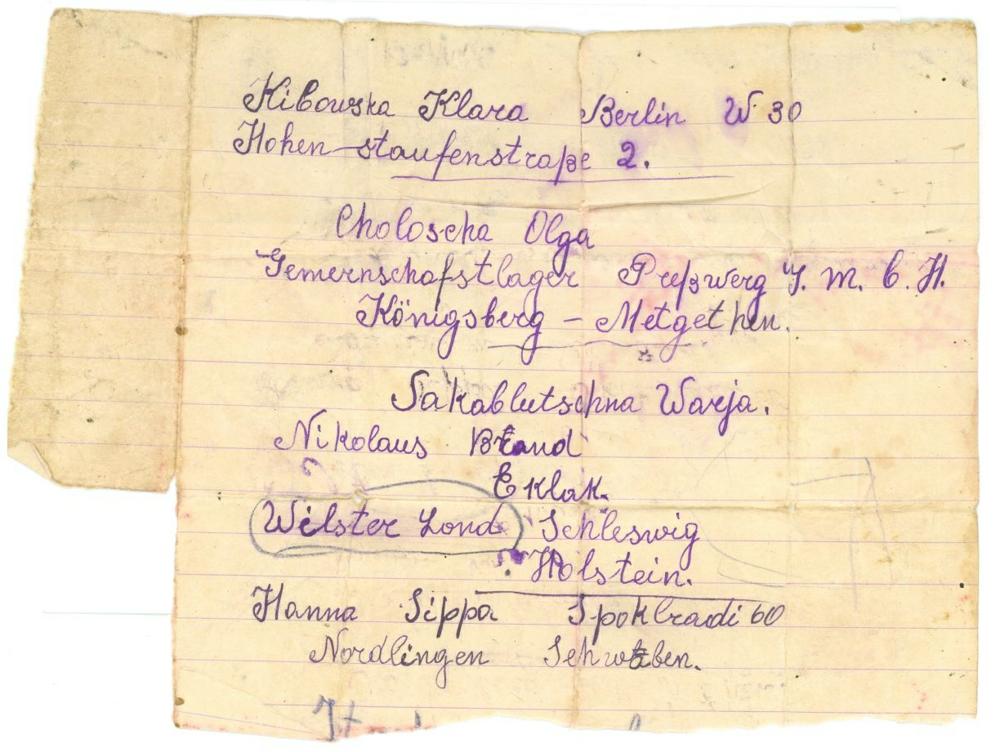 Kibowska Klara Berlin W 30
Hohen-staufenstraße 2.
Choloscha Olga
Gemernschafstlager Preßwerg G. M. b. H.
Königsberg - Metgethen.
Sakablutschna Warja.
Nikolaus Brand
Eklak.
Wilster Land Schleswig
Holstein.
Hanna Sippa
Nordlingen Schwaben.